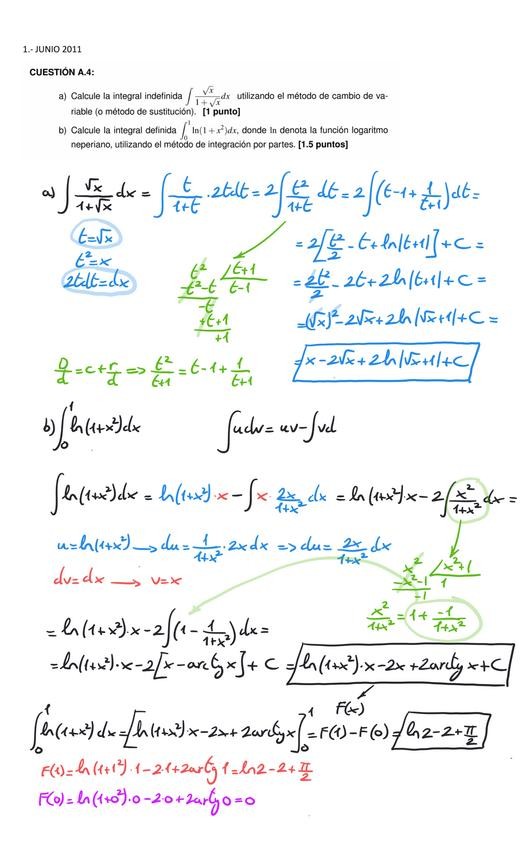 1.- JUNIO 2011
CUESTIÓN A.4:
a) Calcule la integral indefinida ∫ √x/(1+√x) dx utilizando el método de cambio de va-
riable (o método de sustitución). [1 punto]
b) Calcule la integral definida ∫₀¹ ln(1+x²)dx, donde ln denota la función logaritmo
neperiano, utilizando el método de integración por partes. [1.5 puntos]
a) ∫ √x/(1+√x) dx = ∫ t/(1+t) · 2tdt = 2∫ t²/(1+t) dt = 2∫(t-1+1/(t+1))dt =
t=√x
t²=x
2tdt=dx
t² /t+1
-t²-t t-1
-t
+t+1
+1
= 2[t²/2 - t + ln|t+1|] + C =
= 2t²/2 - 2t + 2ln|t+1| + C =
= (√x)² - 2√x + 2ln|√x+1| + C =
= x - 2√x + 2ln|√x+1| + C
D/d = c + r/d => t²/(t+1) = t-1 + 1/(t+1)
b) ∫₀¹ ln(1+x²)dx ∫udv = uv - ∫vd
∫ln(1+x²)dx = ln(1+x²)·x - ∫x · 2x/(1+x²) dx = ln(1+x²)·x - 2∫ x²/(1+x²) dx =
u=ln(1+x²) → du = 1/(1+x²) · 2xdx => du = 2x/(1+x²) dx
dv=dx → v=x
x² /x²+1
-x²-1 1
-1
x²/(1+x²) = 1 + -1/(1+x²)
= ln(1+x²)·x - 2∫(1 - 1/(1+x²))dx =
= ln(1+x²)·x - 2[x - arctg x] + C = ln(1+x²)·x - 2x + 2arctg x + C
F(x)
∫₀¹ ln(1+x²)dx = [ln(1+x²)x - 2x + 2arctg x]₀¹ = F(1) - F(0) = ln2 - 2 + π/2
F(1) = ln(1+1²)·1 - 2·1 + 2arctg 1 = ln2 - 2 + π/2
F(0) = ln(1+0²)·0 - 2·0 + 2arctg 0 = 0